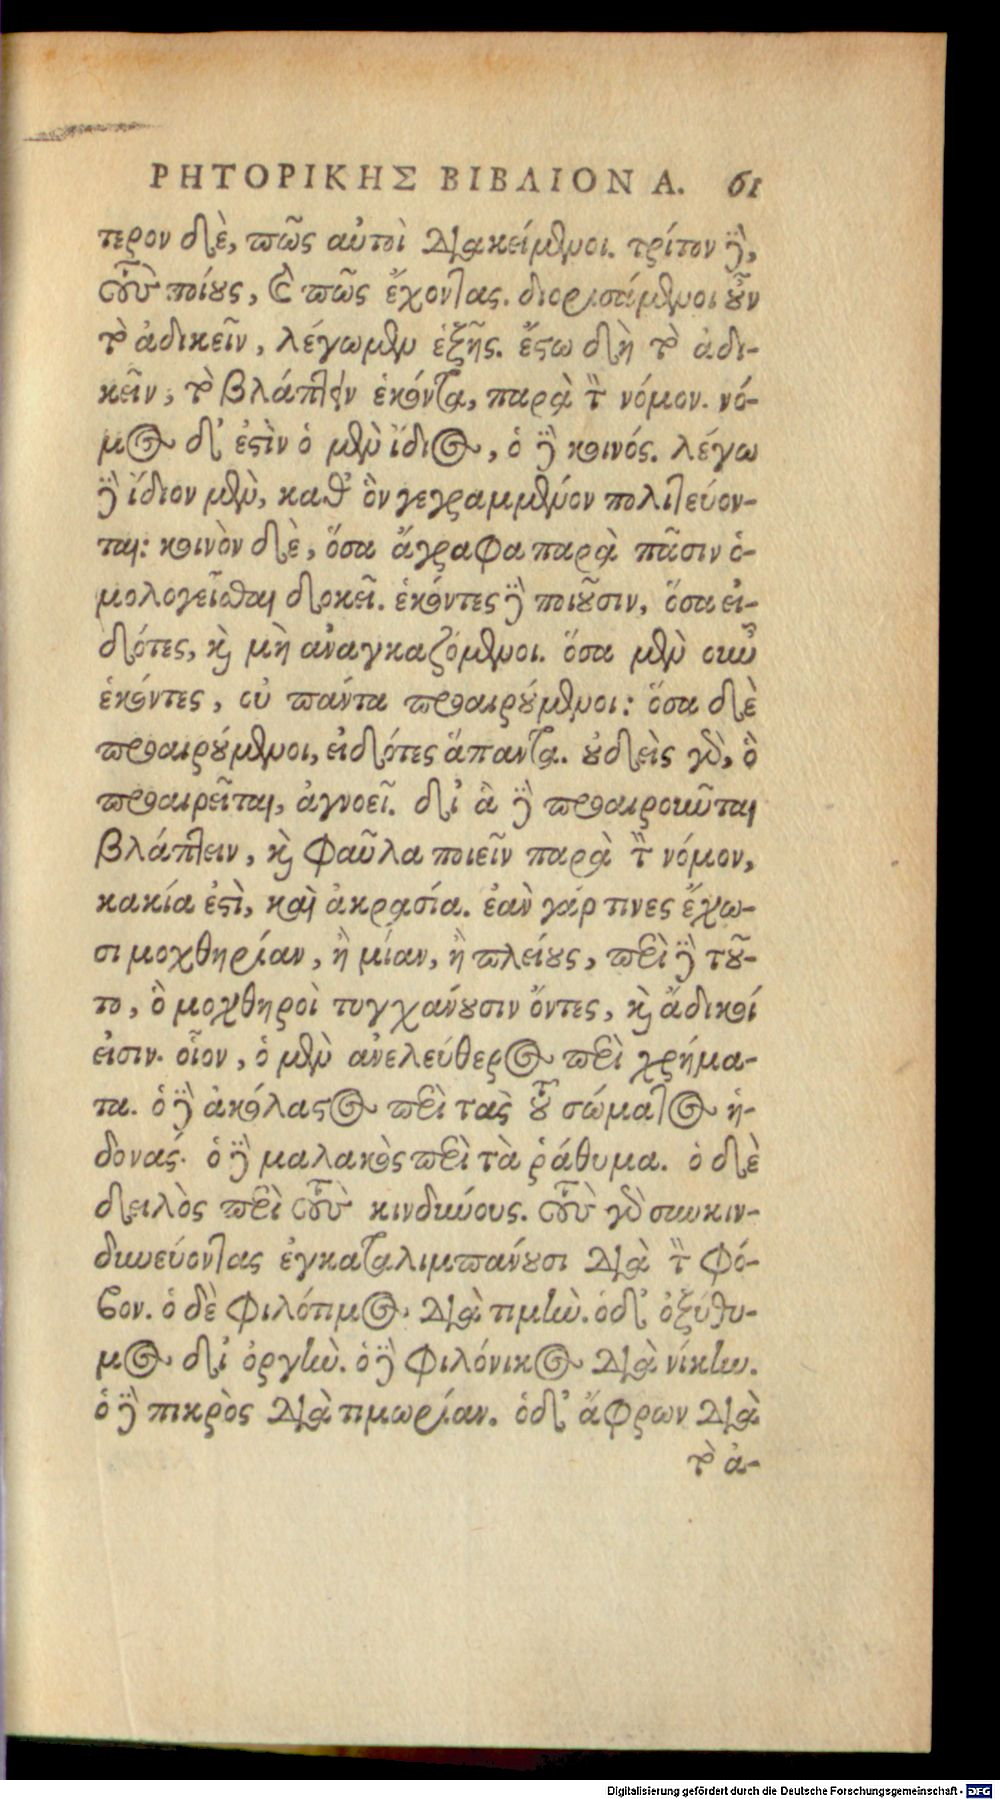 ΡΗΤΟΡΙΚΗΣ ΒΙΒΛΙΟΝ Α. 61
τερον δὲ, πῶς αὐτοὶ διακείμενοι. τρίτον δὲ,
τοὺς ποίους, καὶ πῶς ἔχοντας. διορισάμενοι οὖν
τὸ ἀδικεῖν, λέγωμεν ἑξῆς. ἔστω δὴ τὸ ἀδι-
κεῖν, τὸ βλάπτειν ἑκόντα, παρὰ τὸν νόμον. νό-
μος δ' ἐστὶν ὁ μὲν ἴδιος, ὁ δὲ κοινός. λέγω
δὲ ἴδιον μὲν, καθ' ὃν γεγραμμένον πολιτεύον-
ται: κοινὸν δὲ, ὅσα ἄγραφα παρὰ πᾶσιν ὁ-
μολογεῖσθαι δοκεῖ. ἑκόντες δὲ ποιοῦσιν, ὅσα εἰ-
δότες, καὶ μὴ ἀναγκαζόμενοι. ὅσα μὲν οὖν
ἑκόντες, οὐ πάντα προαιρούμενοι: ὅσα δὲ
προαιρούμενοι, εἰδότες ἅπαντα. οὐδεὶς γὰρ, ὃ
προαιρεῖται, ἀγνοεῖ. δι' ἃ δὲ προαιροῦνται
βλάπτειν, καὶ φαῦλα ποιεῖν παρὰ τὸν νόμον,
κακία ἐστὶ, καὶ ἀκρασία. ἐὰν γάρ τινες ἔχω-
σι μοχθηρίαν, ἢ μίαν, ἢ πλείους, περὶ δὲ τοῦ-
το, ὃ μοχθηροὶ τυγχάνουσιν ὄντες, καὶ ἄδικοί
εἰσιν. οἷον, ὁ μὲν ἀνελεύθερος περὶ χρήμα-
τα. ὁ δὲ ἀκόλαστος περὶ τὰς τοῦ σώματος ἡ-
δονάς. ὁ δὲ μαλακὸς περὶ τὰ ῥάθυμα. ὁ δὲ
δειλὸς περὶ τοὺς κινδύνους. τοὺς γὰρ συγκιν-
δυνεύοντας ἐγκαταλιμπάνουσι διὰ τὸν φό-
βον. ὁ δὲ φιλότιμος, διὰ τιμήν. ὁ δ' ὀξύθυ-
μος δι' ὀργήν. ὁ δὲ φιλόνικος διὰ νίκην.
ὁ δὲ πικρὸς διὰ τιμωρίαν. ὁ δ' ἄφρων διὰ
τὸ ἀ-
Digitalisierung gefördert durch die Deutsche Forschungsgemeinschaft - DFG